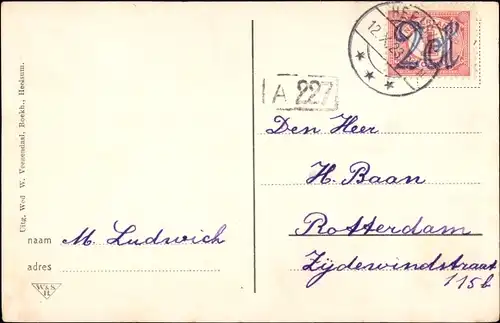 HEE
12.X.23
2 ct
A 227
Den Heer
H. Baan
Rotterdam
Zijdewindstraat
115b
Uitg. Wed W. Veenendaal, Boekh., Heelsum.
naam M. Ludwich
adres
W&S
H.